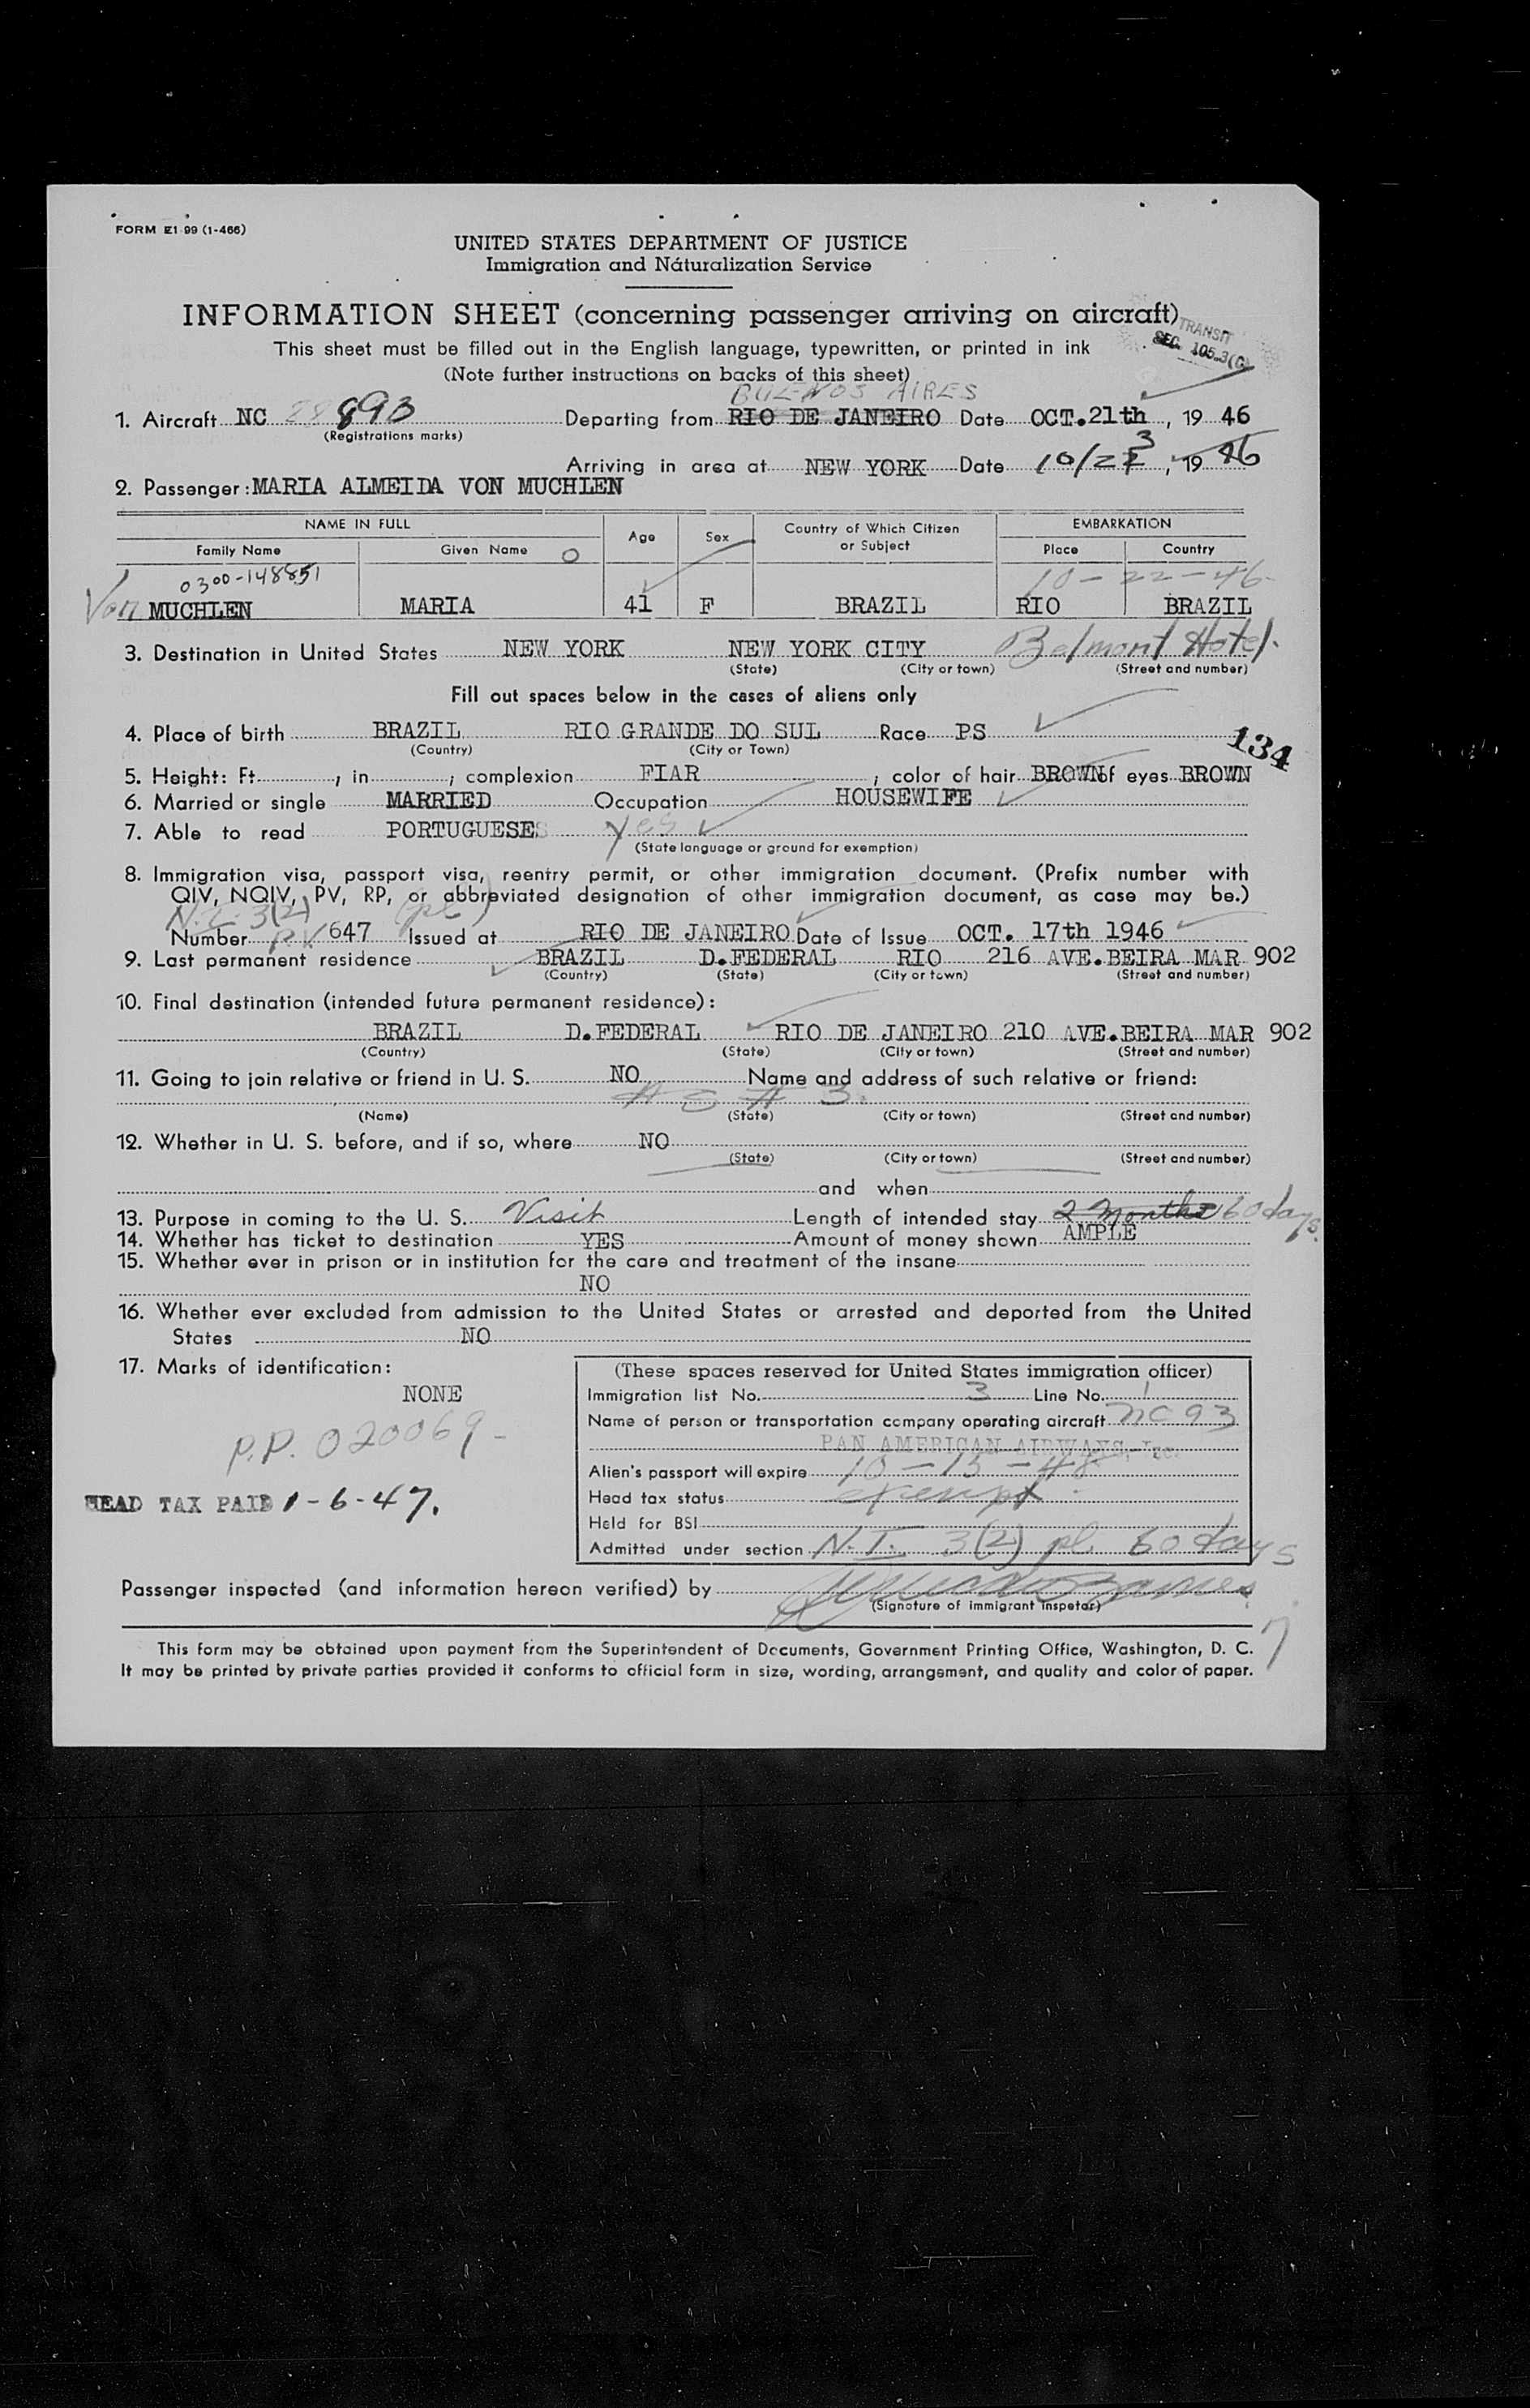 FORM E1-99 (1-466)
UNITED STATES DEPARTMENT OF JUSTICE
Immigration and Náturalization Service
INFORMATION SHEET (concerning passenger arriving on aircraft)
TRANSIT
SEC. 105.3(C)
This sheet must be filled out in the English language, typewritten, or printed in ink
(Note further instructions on backs of this sheet)
BUENOS AIRES
1. Aircraft NC 88893 Departing from RIO DE JANEIRO Date OCT.21th, 19 46
(Registrations marks)
Arriving in area at NEW YORK Date 10/23, 19 46
2. Passenger: MARIA ALMEIDA VON MUCHLEN
NAME IN FULL Age Sex Country of Which Citizen or Subject EMBARKATION
Family Name Given Name O Place Country
0300-148851 10-22-46
Von MUCHLEN MARIA 41 F BRAZIL RIO BRAZIL
3. Destination in United States NEW YORK NEW YORK CITY Belmont Hotel.
(State) (City or town) (Street and number)
Fill out spaces below in the cases of aliens only
4. Place of birth BRAZIL RIO GRANDE DO SUL Race PS
(Country) (City or Town)
134
5. Height: Ft. , in , complexion FIAR , color of hair BROWN of eyes BROWN
6. Married or single MARRIED Occupation HOUSEWIFE
7. Able to read PORTUGUESE yes
(State language or ground for exemption)
8. Immigration visa, passport visa, reentry permit, or other immigration document. (Prefix number with
QIV, NQIV, PV, RP, or abbreviated designation of other immigration document, as case may be.)
N.I. 3(2) (pl)
Number P.V. 647 Issued at RIO DE JANEIRO Date of Issue OCT. 17th 1946
9. Last permanent residence BRAZIL D.FEDERAL RIO 216 AVE.BEIRA MAR 902
(Country) (State) (City or town) (Street and number)
10. Final destination (intended future permanent residence):
BRAZIL D.FEDERAL RIO DE JANEIRO 210 AVE.BEIRA MAR 902
(Country) (State) (City or town) (Street and number)
11. Going to join relative or friend in U. S. NO Name and address of such relative or friend:
# 3.
(Name) (State) (City or town) (Street and number)
12. Whether in U. S. before, and if so, where NO
(State) (City or town) (Street and number)
and when
13. Purpose in coming to the U. S. Visit Length of intended stay 2 Months 60 days.
14. Whether has ticket to destination YES Amount of money shown AMPLE
15. Whether ever in prison or in institution for the care and treatment of the insane
NO
16. Whether ever excluded from admission to the United States or arrested and deported from the United
States NO
17. Marks of identification:
NONE
P.P. 020069-
HEAD TAX PAID 1-6-47.
(These spaces reserved for United States immigration officer)
Immigration list No. 3 Line No. 1
Name of person or transportation company operating aircraft NC 93
PAN AMERICAN AIRWAYS, Inc.
Alien's passport will expire 10-15-48
Head tax status exempt
Held for BSI
Admitted under section N.I. 3(2) pl 60 days
Passenger inspected (and information hereon verified) by
(Signature of immigrant inspetor)
7
This form may be obtained upon payment from the Superintendent of Documents, Government Printing Office, Washington, D. C.
It may be printed by private parties provided it conforms to official form in size, wording, arrangement, and quality and color of paper.